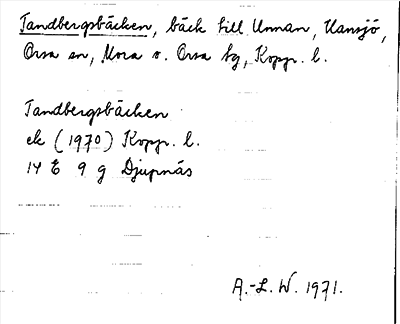 Tandbergsbäcken, bäck till Unnan, Hansjö,
Orsa sn, Mora o. Orsa tg, Kopp. l.
Tandbergsbäcken
ek (1970) Kopp. l.
14 E 9 g Djupnäs
A.-L. W. 1971.